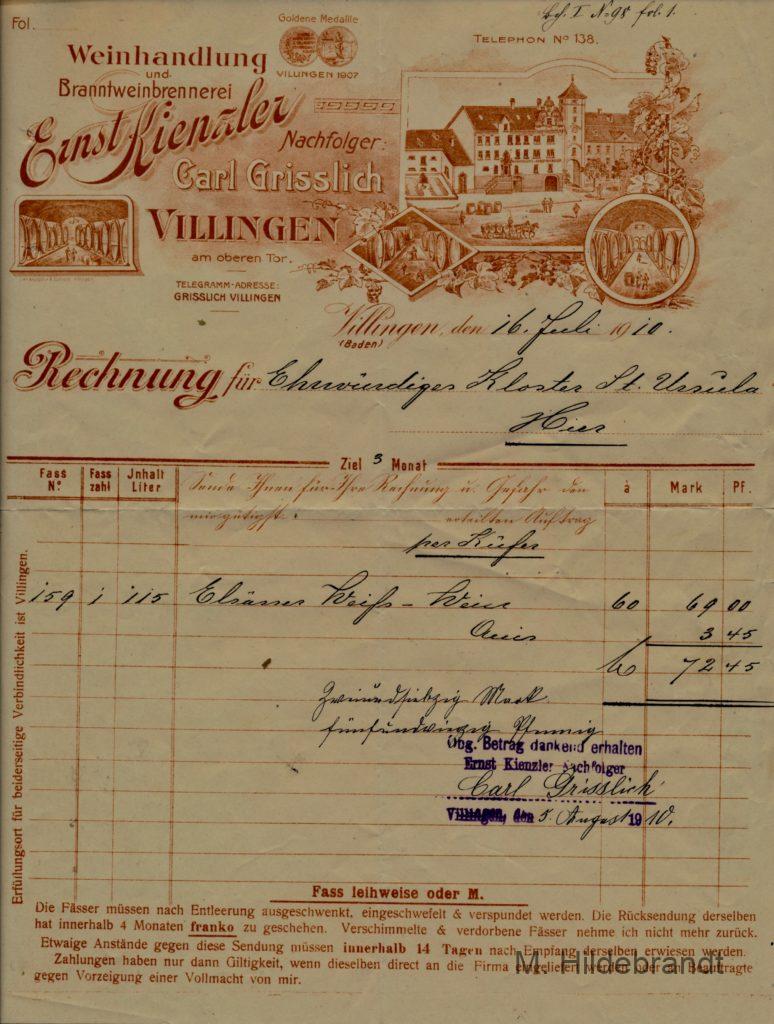 Fol.
Bch. I No 98 fol. 1.
Goldene Medaille
VILLINGEN 1907
TELEPHON No 138.
Weinhandlung
und
Branntweinbrennerei
Ernst Kienzler
Nachfolger:
Carl Grisslich
VILLINGEN
am oberen Tor.
TELEGRAMM-ADRESSE:
GRISSLICH VILLINGEN
Villingen, den 16. Juli 1910.
(Baden)
Rechnung für Ehrwürdiges Kloster St. Ursula
Hier
Ziel 3 Monat
Fass No. Fass zahl Jnhalt Liter à Mark Pf.
Sende Ihnen für Ihre Rechnung u. Gefahr den
mir gütigst erteilten Auftrag
per Küfer
159 1 115 Elsässer Weiss-Wein 60 69 00
3 45
72 45
Zweiundsiebzig Mark
fünfundvierzig Pfennig
Obg. Betrag dankend erhalten
Ernst Kienzler Nachfolger
Carl Grisslich
Villingen, den 5. August 1910.
Erfüllungsort für beiderseitige Verbindlichkeit ist Villingen.
Fass leihweise oder M.
Die Fässer müssen nach Entleerung ausgeschwenkt, eingeschwefelt & verspundet werden. Die Rücksendung derselben
hat innerhalb 4 Monaten franko zu geschehen. Verschimmelte & verdorbene Fässer nehme ich nicht mehr zurück.
Etwaige Anstände gegen diese Sendung müssen innerhalb 14 Tagen nach Empfang derselben erwiesen werden.
Zahlungen haben nur dann Giltigkeit, wenn dieselben direct an die Firma eingeliefert werden oder an Beauftragte
gegen Vorzeigung einer Vollmacht von mir.
M. Hildebrandt